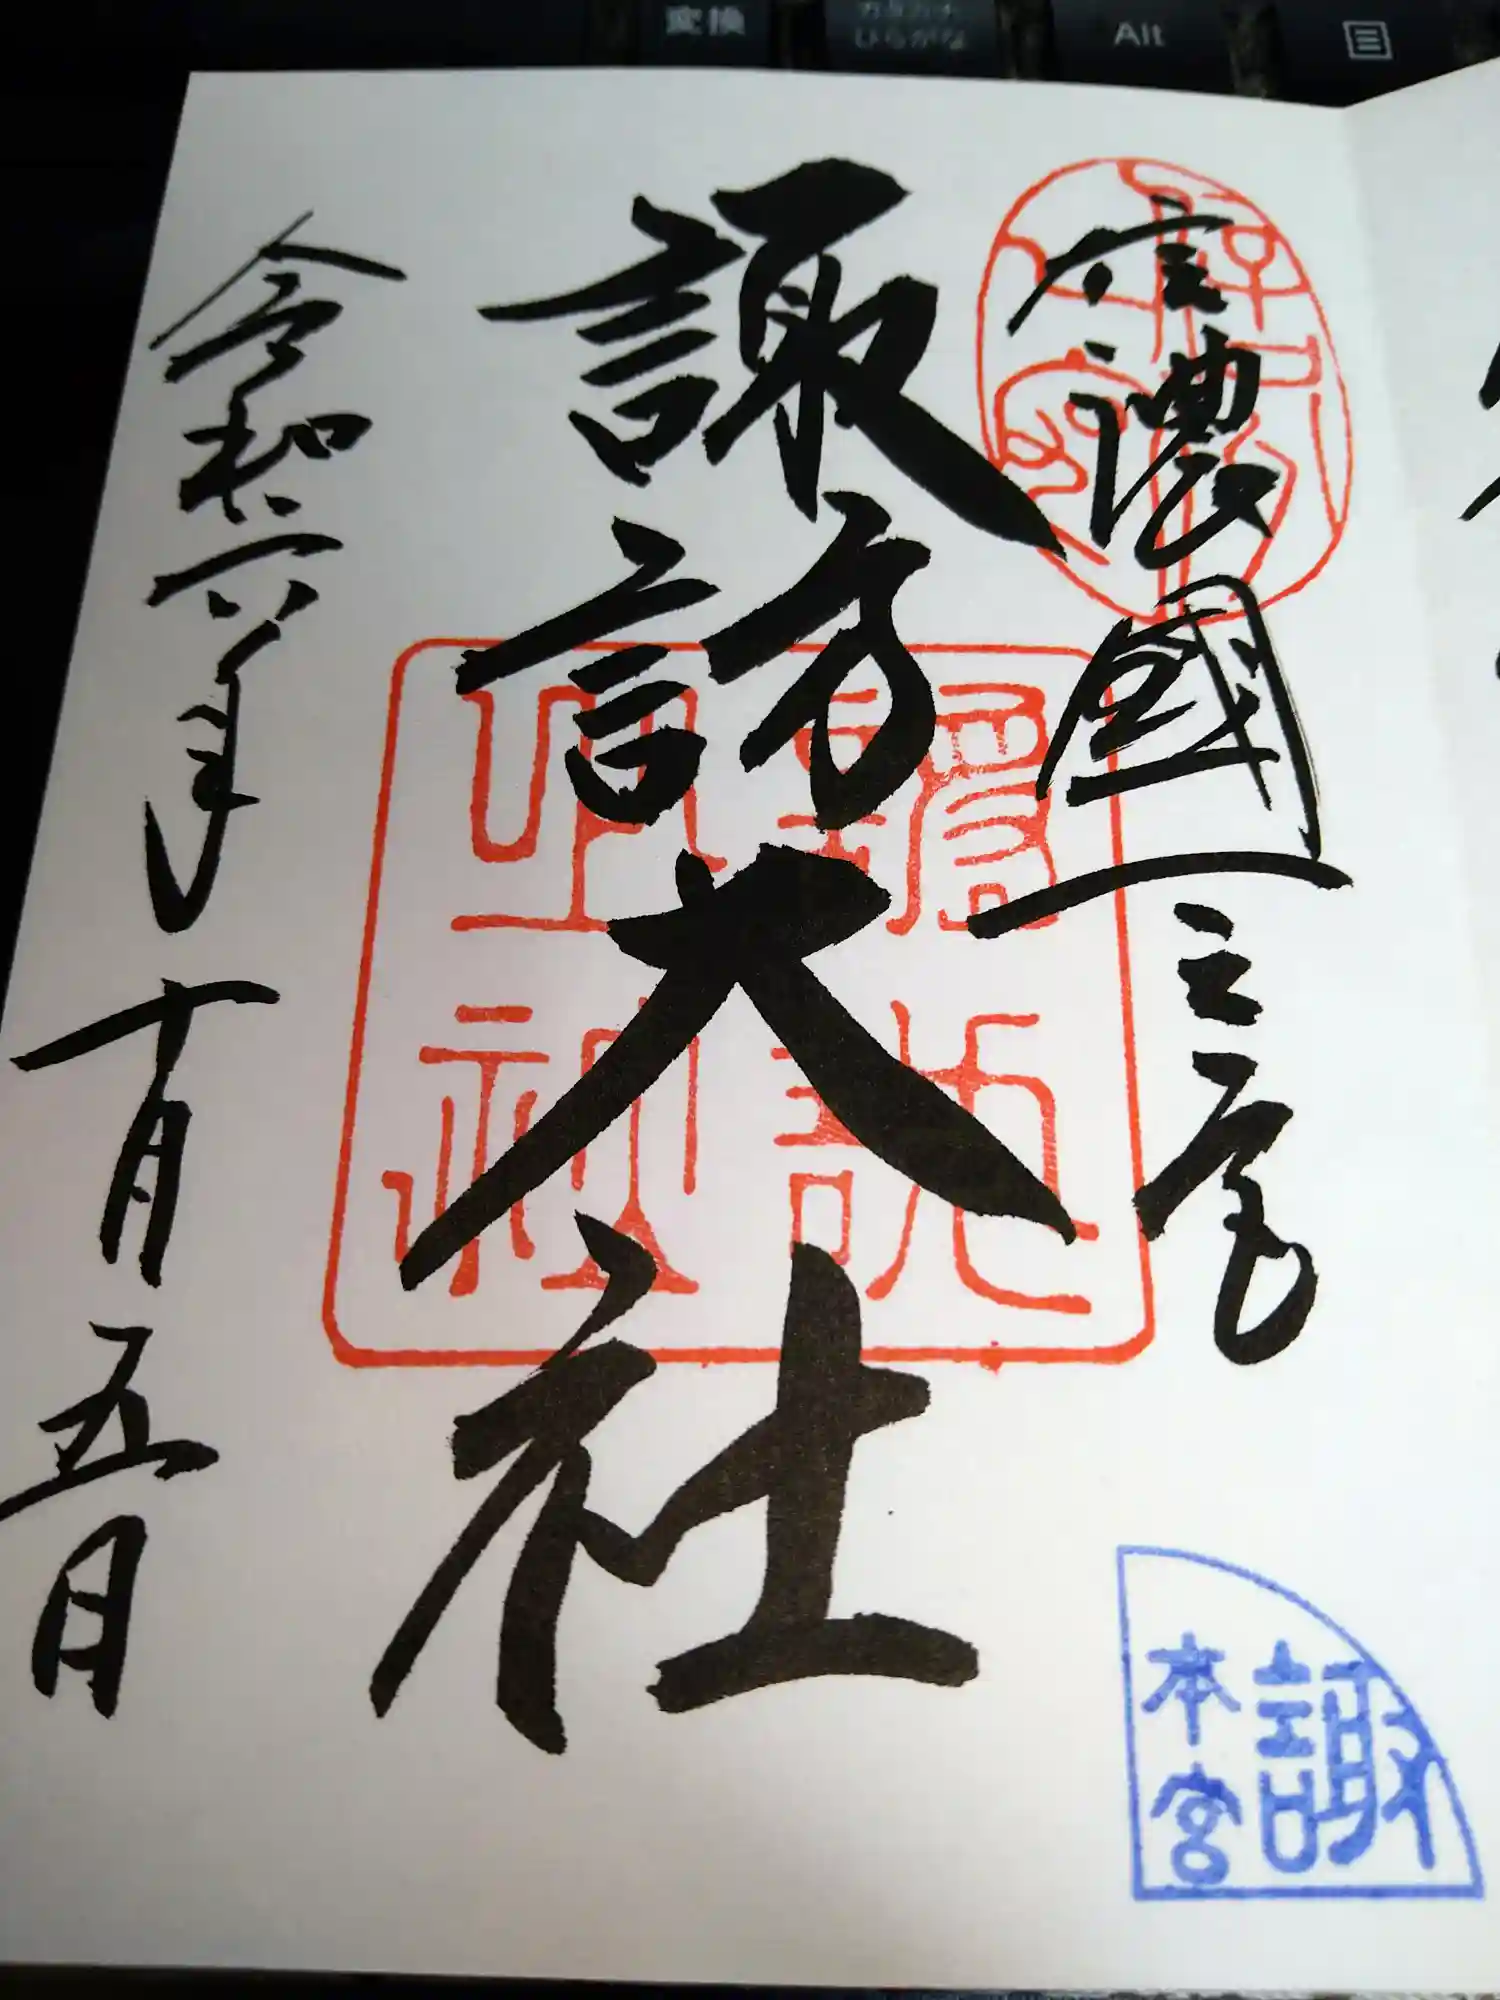 変換
カタカナ
ひらがな
Alt
信濃國一之宮
諏訪大社
令和六年十月五日
諏訪大社
諏
本宮